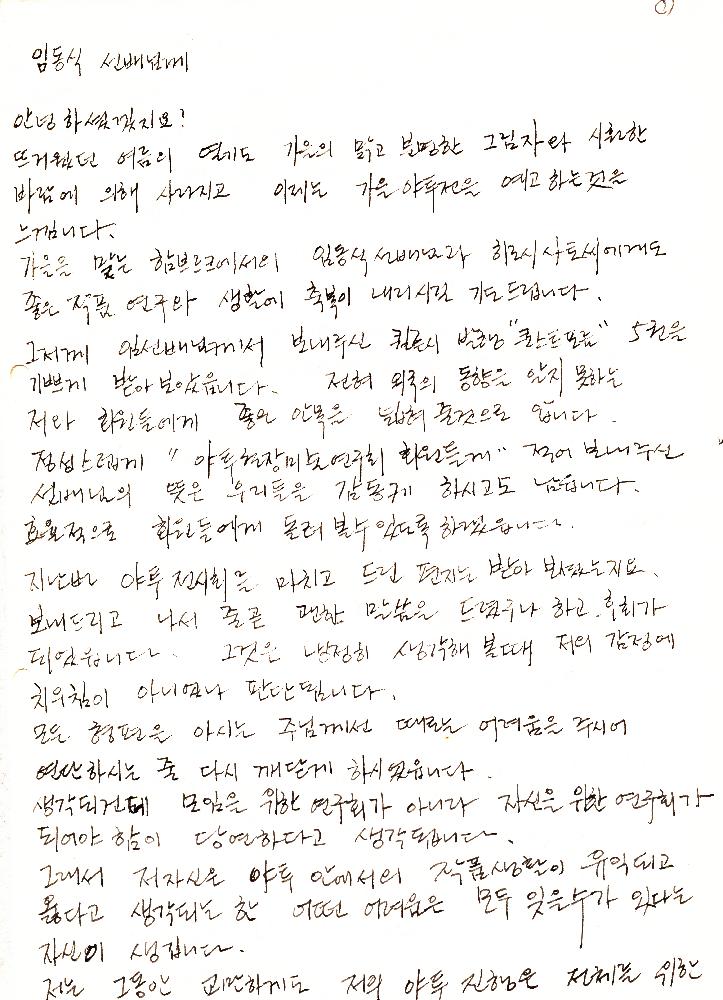 임동식 선배님께
안녕하셨겠지요!
뜨거웠던 여름의 열기도 가을의 맑고 분명한 그림자와 시원한
바람에 의해 사라지고 이제는 가을 야투전을 예고하는것을
느낍니다.
가을을 맞는 함브르크에서의 임동식 선배님과 히로시 사토씨에게도
좋은 작품 연구와 생활에 축복이 내리시길 기도드립니다.
그저께 임선배님께서 보내주신 퀼른시 발행 "쿤스트포름" 5권을
기쁘게 받아 보았읍니다. 전혀 외국의 동향을 알지 못하는
저와 회원들에게 좋은 안목을 넓혀 줄것으로 압니다.
정성스럽게 "야투현장미술연구회 회원들께" 적어 보내주신
선배님의 뜻은 우리들을 감동케 하시고도 남읍니다.
효율적으로 회원들에게 돌려 볼수 있도록 하겠읍니다.
지난번 야투 전시회를 마치고 드린 편지는 받아 보셨는지요.
보내드리고 나서 줄곧 괜한 말씀을 드렸구나 하고 후회가
되었읍니다. 그것은 냉정히 생각해 볼때 저의 감정에
치우침이 아니였나 판단됩니다.
모든 형편을 아시는 주님께선 때로는 어려움을 주시어
연단하시는 줄 다시 깨닫게 하시었읍니다.
생각되건데 모임을 위한 연구회가 아니라 자신을 위한 연구회가
되어야 함이 당연하다고 생각됩니다.
그래서 저자신은 야투 안에서의 작품생활이 유익되고
옳다고 생각되는 한 어떤 어려움은 모두 잊을수가 있다는
자신이 생깁니다.
저는 그동안 교만하게도 저의 야투 진행은 전체를 위한